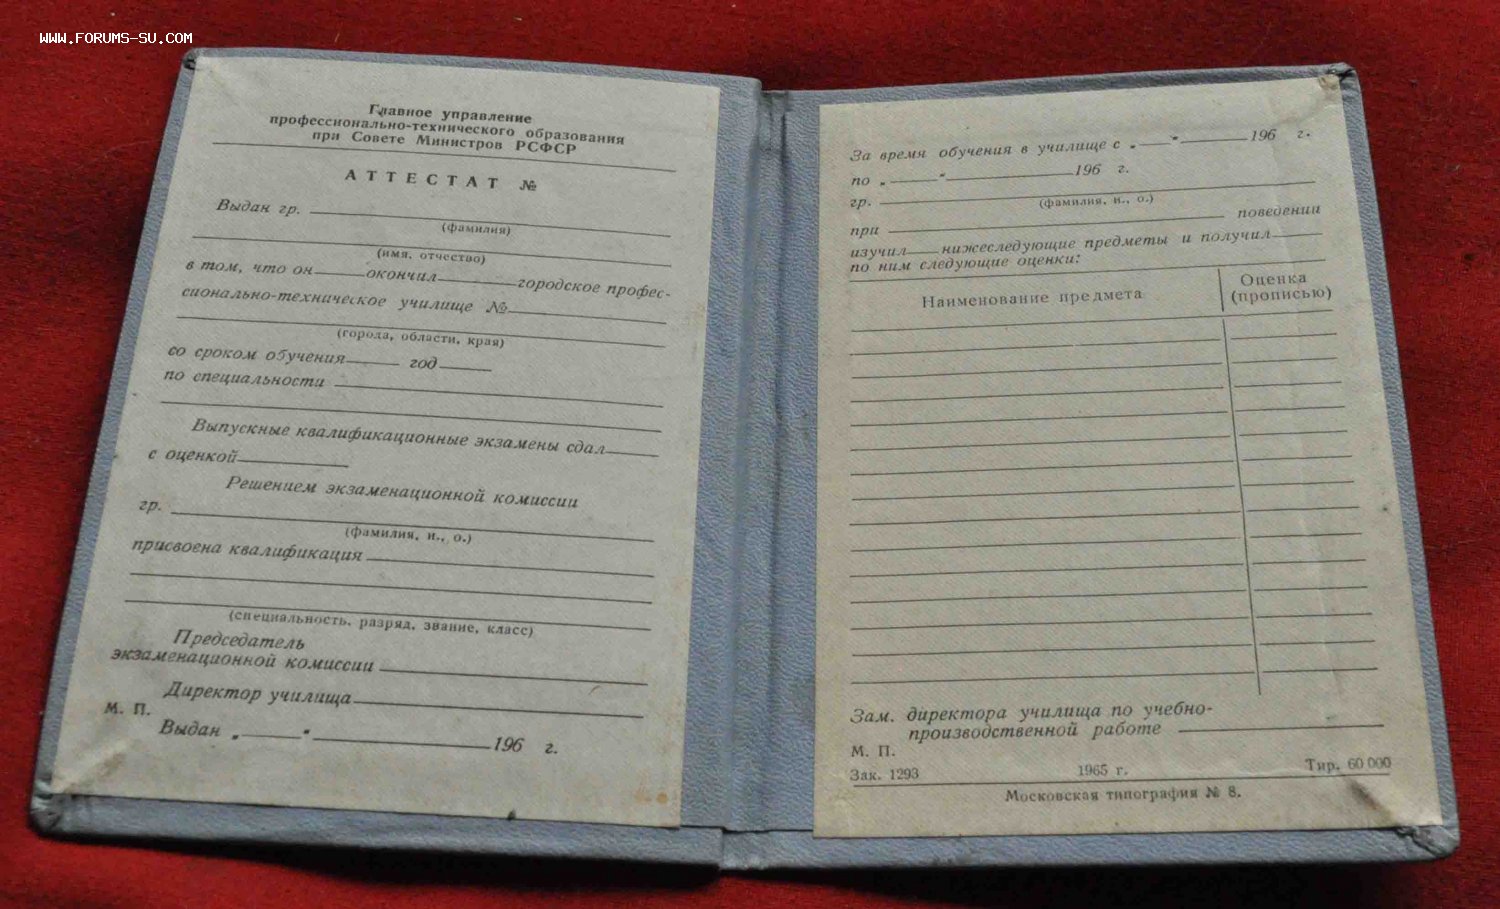 WWW.FORUMS-SU.COM
Главное управление
профессионально-технического образования
при Совете Министров РСФСР
АТТЕСТАТ №
Выдан гр.
(фамилия)
(имя, отчество)
в том, что он окончил городское профес-
сионально-техническое училище №
(города, области, края)
со сроком обучения год
по специальности
Выпускные квалификационные экзамены сдал
с оценкой
Решением экзаменационной комиссии
гр.
(фамилия, и., о.)
присвоена квалификация
(специальность, разряд, звание, класс)
Председатель
экзаменационной комиссии
Директор училища
М. П.
Выдан „ “ 196 г.
За время обучения в училище с „ “ 196 г.
по „ “ 196 г.
гр.
(фамилия, и., о.)
при поведении
изучил нижеследующие предметы и получил
по ним следующие оценки:
Наименование предмета
Оценка
(прописью)
Зам. директора училища по учебно-
производственной работе
М. П.
Зак. 1293 1965 г. Тир. 60 000
Московская типография № 8.